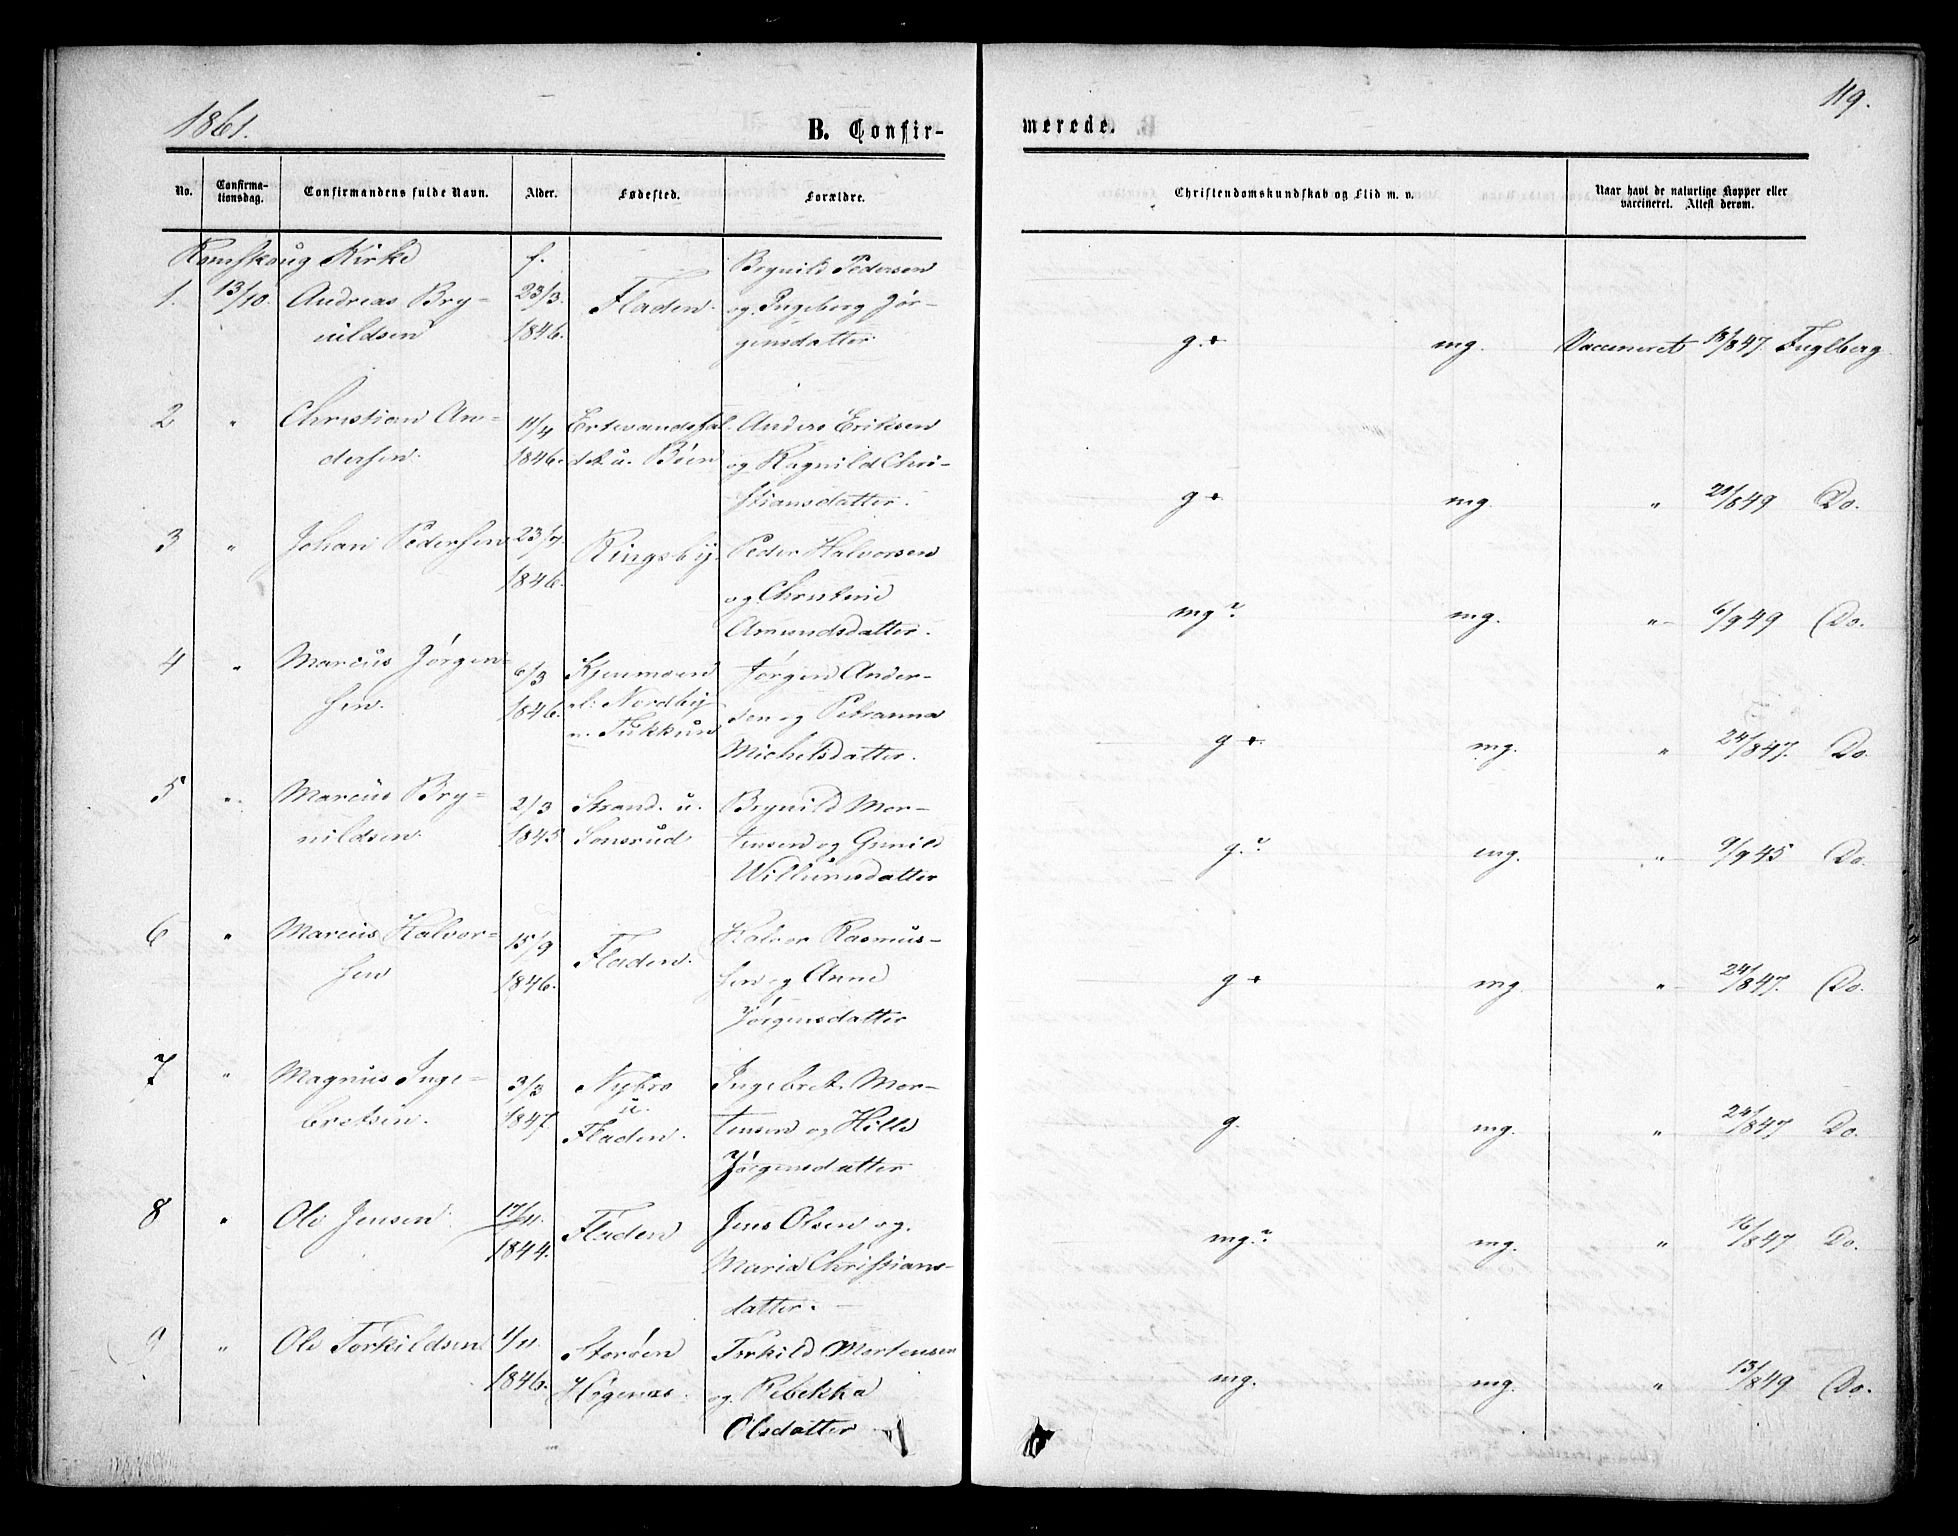 119.
1861.
B. Confir-
merede.
No.
Confirma-
tionsdag.
Confirmandens fulde Navn.
Alder.
Fødested.
Forældre.
Christendomskundskab og Flid m. v.
Naar havt de naturlige Kopper eller
vaccineret. Attest derom.
Romskoug Kirke
f.
1. 13/10. Andreas Bry-
nildsen
23/3.
1846.
Fladen.
Brynild Pedersen
og Ingeborg Jør-
gensdatter
g.+ mg. Vaccineret 18/847. Fuglberg
2 " Christian An-
dersen.
11/4
1846.
Anders Eriksen
og Ragnild Chri-
stiansdatter.
g+ mg. " 20/849 Do.
3 " Johan Pedersen
23/4
1846.
Ringsby.
Peder Halvorsen
og Christine
Amundsdatter.
mg? mg. " 6/949 Do.
4 " Marcus Jørgen-
sen.
6/3
1846.
Nordby
Jørgen Ander-
sen og Petranna
Michelsdatter.
g+. mg. " 24/847. Do.
5 " Marcus Bry-
nildsen.
2/3
1845
Strand. u.
Sonsrud
Brynild Mor-
tensen og Gunild
Willumsdatter
g.? mg. " 9/945 Do.
6 " Marcus Halvor-
sen
15/9
1846.
Fladen.
Halvor Rasmus-
sen og Anne
Jørgensdatter
g+ mg. " 24/847. Do.
7 " Magnus Inge-
bretsen.
3/3
1847.
Nybro
u.
Fladen.
Ingebret Mor-
tensen og Hille
Jørgensdatter
g. mg. " 24/847 Do.
8 " Ole Jensen
17/11.
1844.
Fladen
Jens Olsen og
Maria Christians-
datter.
mg.? mg. " 16/847 Do.
9 " Ole Torkildsen
1/11
1846.
Storøen
Høgenæs.
Torkild Mortensen
og Rebekka
Olsdatter
mg. mg. " 13/849 Do.